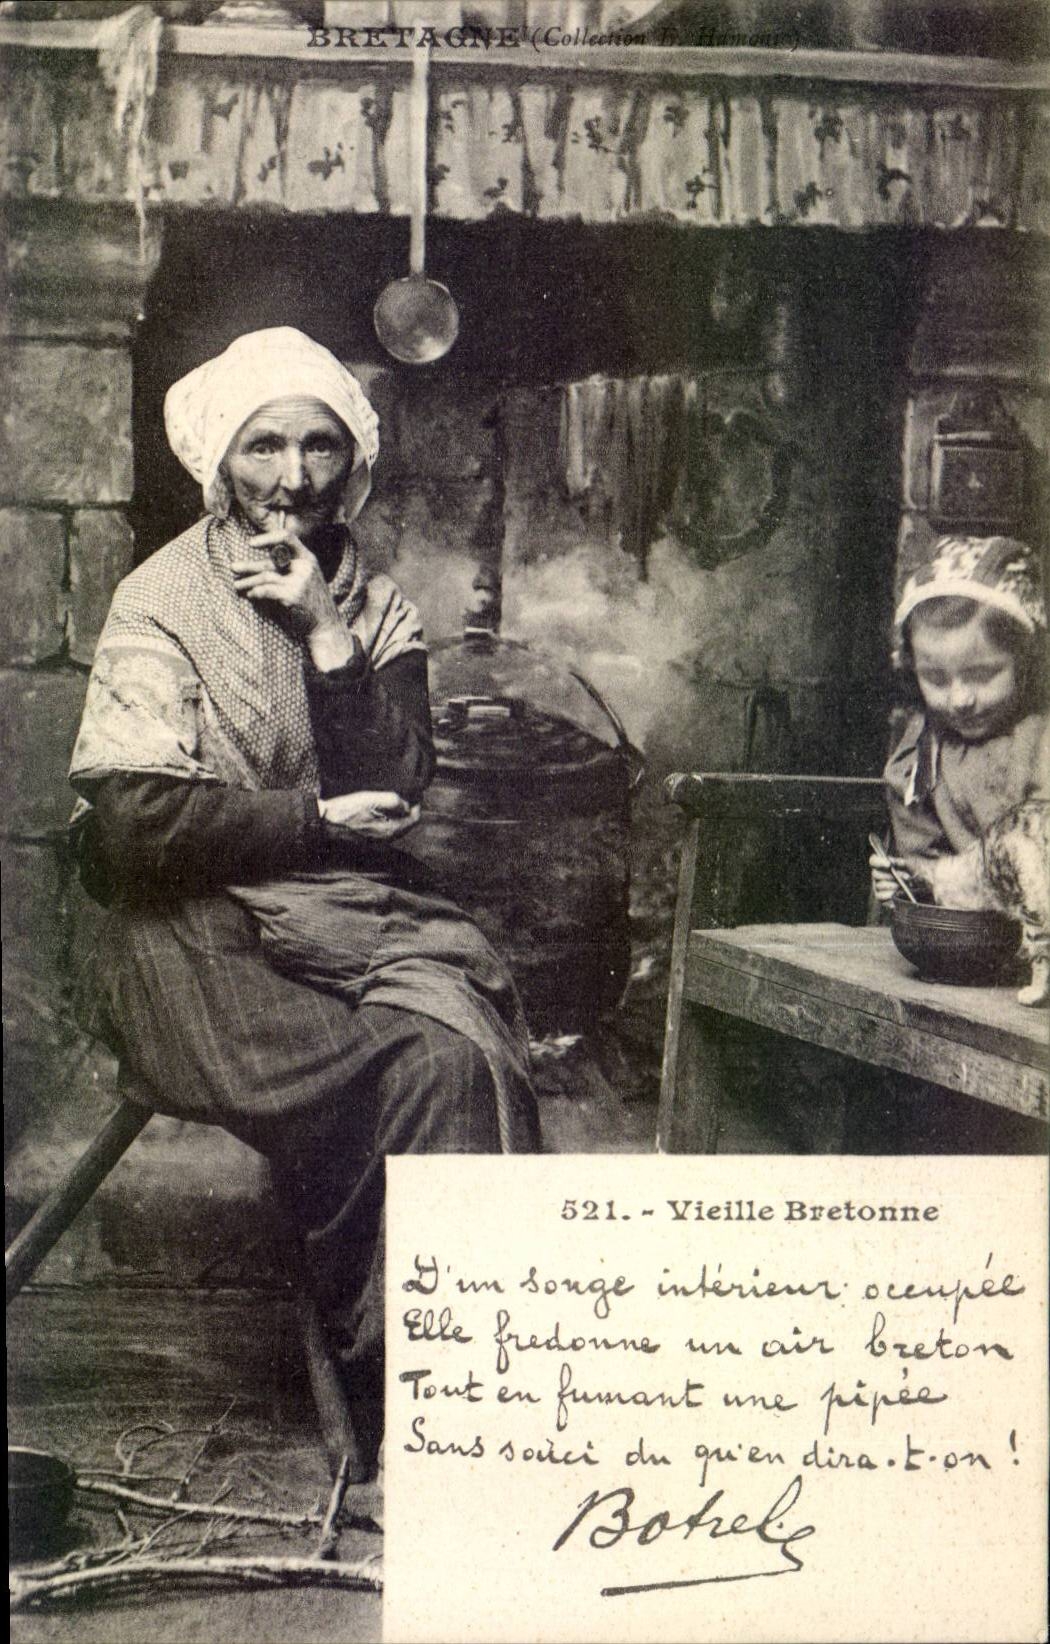 BRETAGNE (Collection E. Hamonic)
521. - Vieille Bretonne
D'un songe intérieur occupée
Elle fredonne un air breton
Tout en fumant une pipée
Sans souci du qu'en dira-t-on !
Botrel